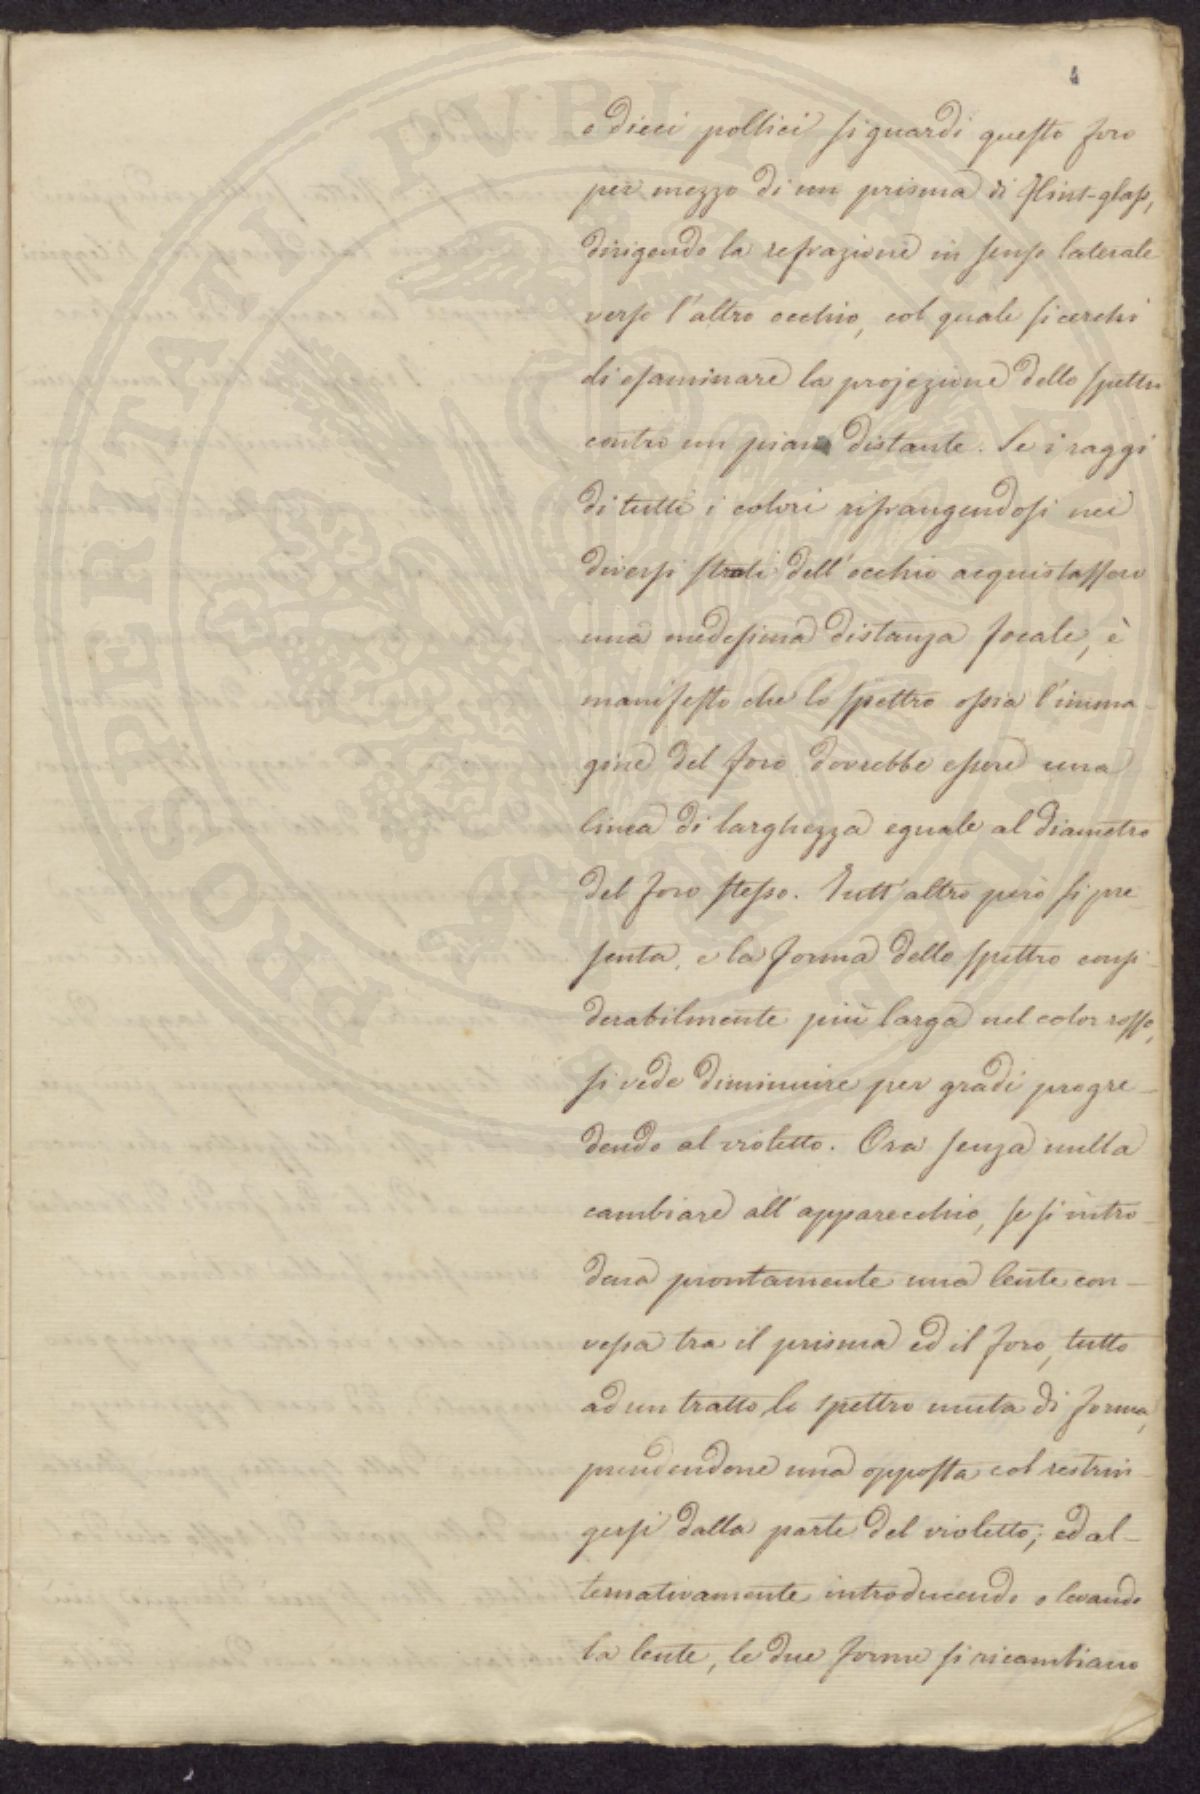 4
o dieci pollici si guardi questo foro
per mezzo di un prisma di Flint-glass,
dirigendo la refrazione in senso laterale
verso l'altro occhio, col quale si cerchi
di esaminare la projezione dello spettro
contro un piano distante. Se i raggi
di tutti i colori rifrangendosi nei
diversi strati dell'occhio acquistassero
una medesima distanza focale, è
manifesto che lo spettro ossia l'imma-
gine del foro dovrebbe essere una
linea di larghezza eguale al diametro
del foro stesso. Tutt'altro però si pre-
senta, e la forma dello spettro consi-
derabilmente più larga nel color rosso,
si vede diminuire per gradi progre-
dendo al violetto. Ora senza nulla
cambiare all'apparecchio, se si intro-
duca prontamente una lente con-
vessa tra il prisma ed il foro, tutto
ad un tratto lo spettro muta di forma,
prendendone una opposta col restrin-
gersi dalla parte del violetto; ed al-
ternativamente introducendo o levando
la lente, le due forme si ricambiano
PROSPERITATI PUBLICAE